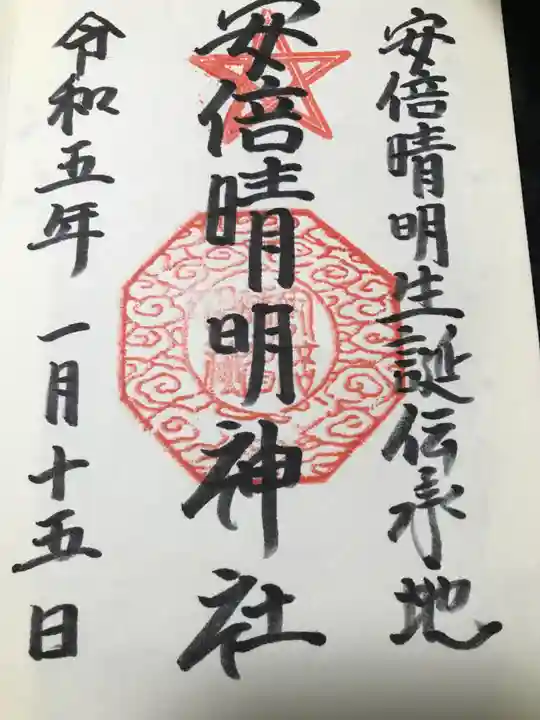 安倍晴明生誕伝承地
安倍晴明神社
令和五年 一月十五日